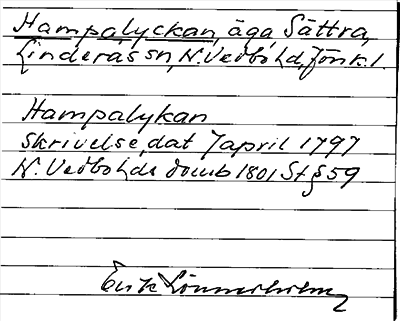 Hampalyckan, äga Sättra,
Linderås sn, N. Vedbo hd, Jönk. l.
Hampalykan
skrivelse dat 7 april 1797
N. Vedbo hds domb 1801 St § 59
Erik Lönnerholm